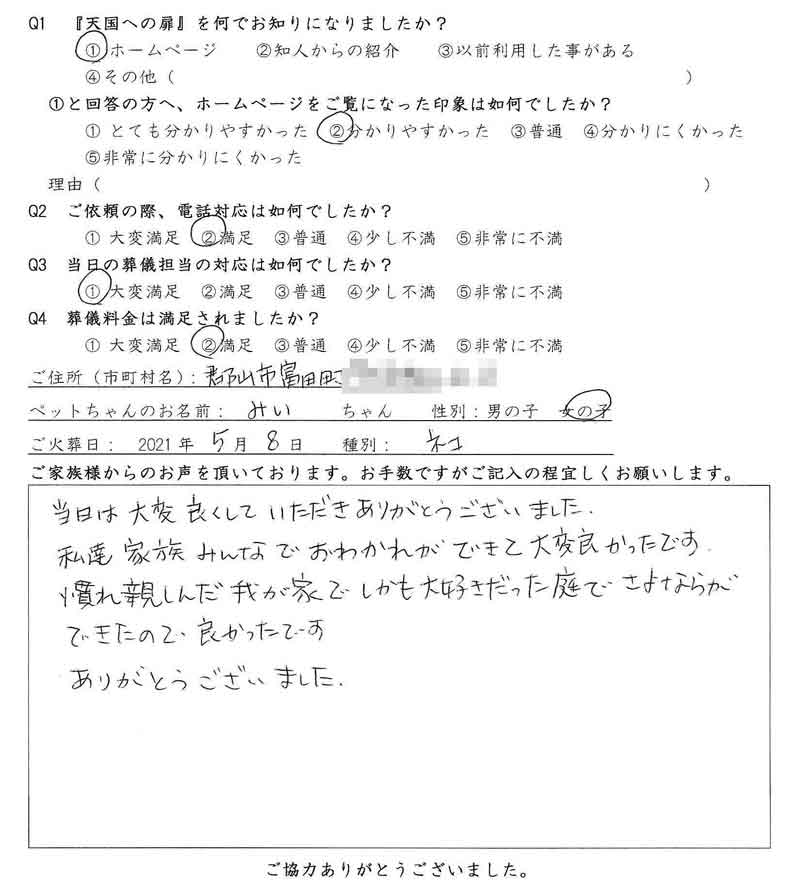 Q1 『天国への扉』を何でお知りになりましたか？
①ホームページ ②知人からの紹介 ③以前利用した事がある
④その他（ ）
①と回答の方へ、ホームページをご覧になった印象は如何でしたか？
① とても分かりやすかった ②分かりやすかった ③普通 ④分かりにくかった
⑤非常に分かりにくかった
理由（ ）
Q2 ご依頼の際、電話対応は如何でしたか？
① 大変満足 ②満足 ③普通 ④少し不満 ⑤非常に不満
Q3 当日の葬儀担当の対応は如何でしたか？
① 大変満足 ②満足 ③普通 ④少し不満 ⑤非常に不満
Q4 葬儀料金は満足されましたか？
① 大変満足 ②満足 ③普通 ④少し不満 ⑤非常に不満
ご住所（市町村名）：郡山市富田町
ペットちゃんのお名前： みい ちゃん 性別：男の子 女の子
ご火葬日： 2021 年 5 月 8 日 種別： ネコ
ご家族様からのお声を頂いております。お手数ですがご記入の程宜しくお願いします。
当日は大変良くしていただきありがとうございました.
私達家族みんなでおわかれができて大変良かったです.
慣れ親しんだ我が家でしかも大好きだった庭でさよならが
できたので良かったです
ありがとうございました.
ご協力ありがとうございました。